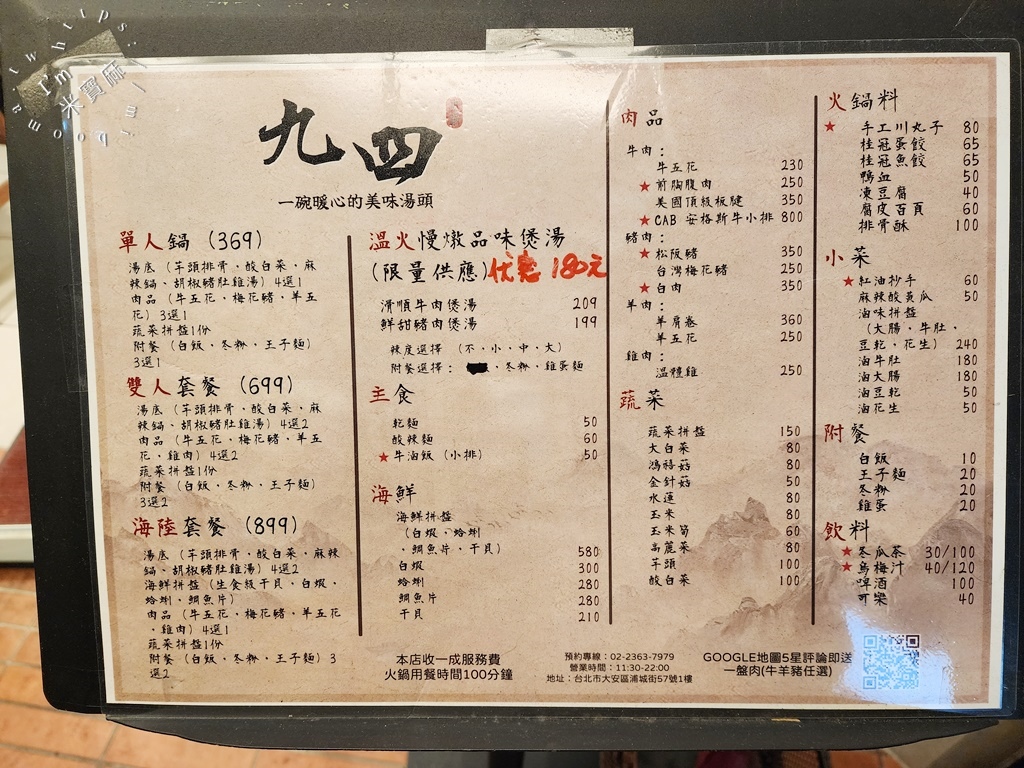 I'm 米寶麻
九四
一碗暖心的美味湯頭
單人鍋 (369)
湯底 (芋頭排骨、酸白菜、麻
辣鍋、胡椒豬肚雞湯) 4選1
肉品 (牛五花、梅花豬、羊五
花) 3選1
蔬菜拼盤1份
附餐 (白飯、冬粉、王子麵)
3選1
雙人套餐 (699)
湯底 (芋頭排骨、酸白菜、麻
辣鍋、胡椒豬肚雞湯) 4選2
肉品 (牛五花、梅花豬、羊五
花、雞肉) 4選2
蔬菜拼盤1份
附餐 (白飯、冬粉、王子麵)
3選2
海陸套餐 (899)
湯底 (芋頭排骨、酸白菜、麻辣
鍋、胡椒豬肚雞湯) 4選2
海鮮拼盤 (生食級干貝、白蝦、
蛤蜊、鯛魚片)
肉品 (牛五花、梅花豬、羊五花
、雞肉) 4選1
蔬菜拼盤1份
附餐 (白飯、冬粉、王子麵) 3
選2
溫火慢燉品味煲湯
(限量供應) 优惠 180元
滑順牛肉煲湯 209
鮮甜豬肉煲湯 199
辣度選擇 (不、小、中、大)
附餐選擇: 、冬粉、雞蛋麵
主食
乾麵 50
酸辣麵 60
★牛油飯 (小排) 50
海鮮
海鮮拼盤
(白蝦、蛤蜊
、鯛魚片、干貝) 580
白蝦 300
蛤蜊 280
鯛魚片 280
干貝 210
本店收一成服務費
火鍋用餐時間100分鐘
肉品
牛肉:
牛五花 230
★前胸腹肉 250
美國頂級板腱 350
★CAB 安格斯牛小排 800
豬肉:
★松阪豬 350
台灣梅花豬 250
★白肉 350
羊肉:
羊肩卷 360
羊五花 350
雞肉:
溫體雞 250
蔬菜
蔬菜拼盤 150
大白菜 80
鴻禧菇 80
金針菇 50
水蓮 80
玉米 80
玉米筍 60
高麗菜 80
芋頭 100
酸白菜 100
預約專線:02-2363-7979
營業時間:11:30-22:00
地址:台北市大安區浦城街57號1樓
火鍋料
★手工川丸子 80
桂冠蛋餃 65
桂冠魚餃 65
鴨血 50
凍豆腐 40
腐皮百頁 60
排骨酥 100
小菜
★紅油抄手 60
麻辣酸黃瓜 50
滷味拼盤
(大腸、牛肚、
豆乾、花生) 240
滷牛肚 180
滷大腸 180
滷豆乾 50
滷花生 50
附餐
白飯 10
王子麵 20
冬粉 20
雞蛋 20
飲料
★冬瓜茶 30/100
★烏梅汁 40/120
啤酒 100
可樂 40
GOOGLE地圖5星評論即送
一盤肉(牛羊豬任選)